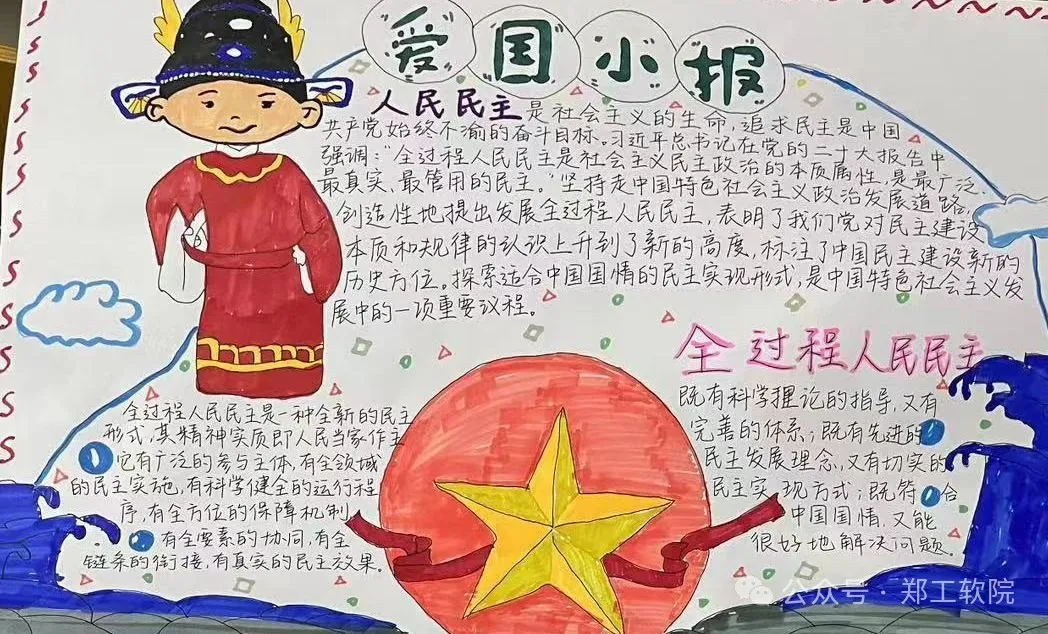 爱国小报
人民民主是社会主义的生命，追求民主是中国
共产党始终不渝的奋斗目标。习近平总书记在党的二十大报告中
强调：“全过程人民民主是社会主义民主政治的本质属性，是最广泛、
最真实、最管用的民主。”坚持走中国特色社会主义政治发展道路，
创造性地提出发展全过程人民民主，表明了我们党对民主建设
本质和规律的认识上升到了新的高度，标注了中国民主建设新的
历史方位。探索适合中国国情的民主实现形式，是中国特色社会主义发
展中的一项重要议程。
全过程人民民主
全过程人民民主是一种全新的民主
形式，其精神实质即人民当家作主
它有广泛的参与主体，有全领域
的民主实施，有科学健全的运行程
序，有全方位的保障机制
有全要素的协同，有全
链条的衔接，有真实的民主效果。
既有科学理论的指导，又有
完善的体系；既有先进的
民主发展理念，又有切实的
民主实现方式；既符合
中国国情，又能
很好地解决问题。
公众号·郑工软院